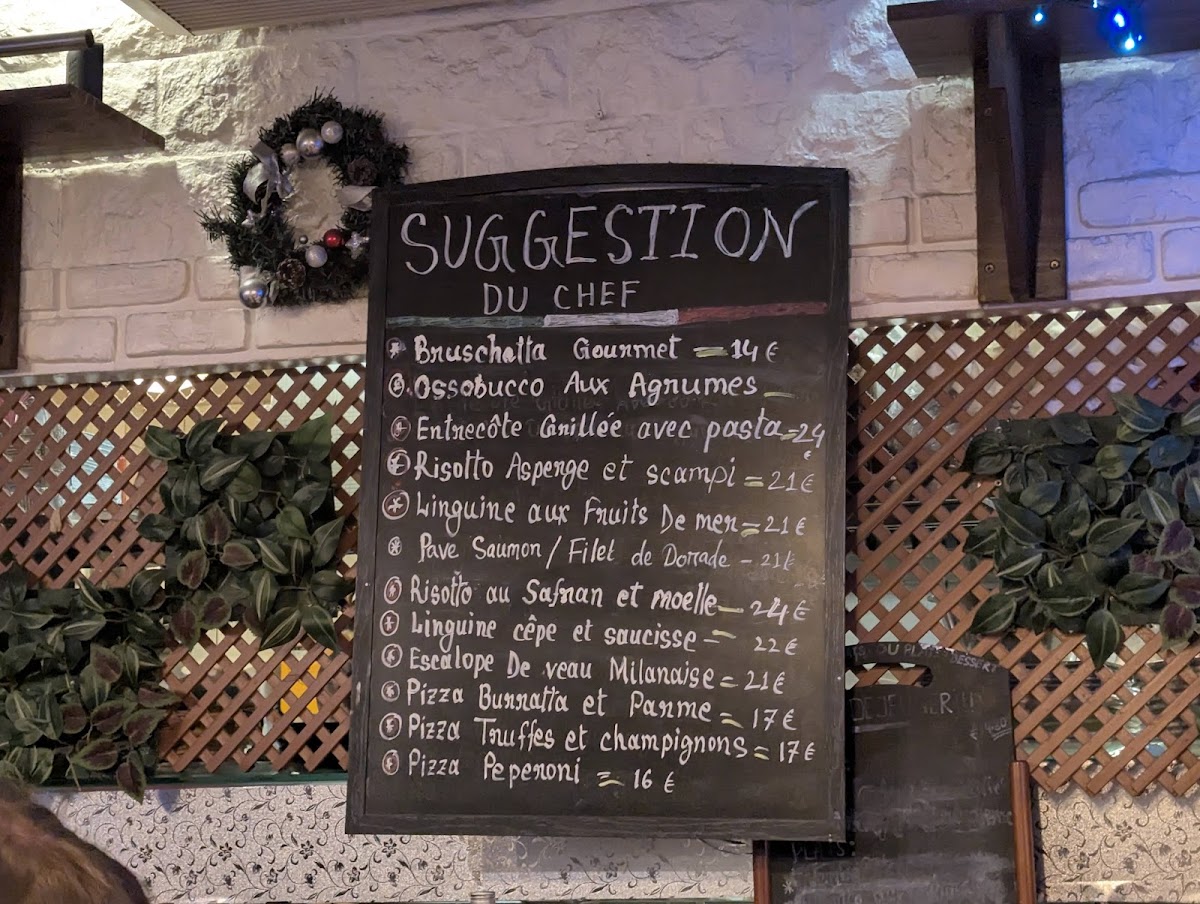 SUGGESTION
DU CHEF
Bruschatta Gourmet = 14 €
Ossobucco Aux Agrumes
Entrecôte Grillée avec pasta = 24 €
Risotto Asperge et scampi = 21 €
Linguine aux Fruits De mer = 21 €
Pave Saumon / Filet de Dorrade - 21€
Risotto au Safran et moelle - 24 €
Linguine cêpe et saucisse - 22 €
Escalope De veau Milanaise = 21 €
Pizza Burratta et Parme = 17 €
Pizza Truffes et champignons = 17 €
Pizza Peperoni = 16 €
OU PLATS-DESSERT